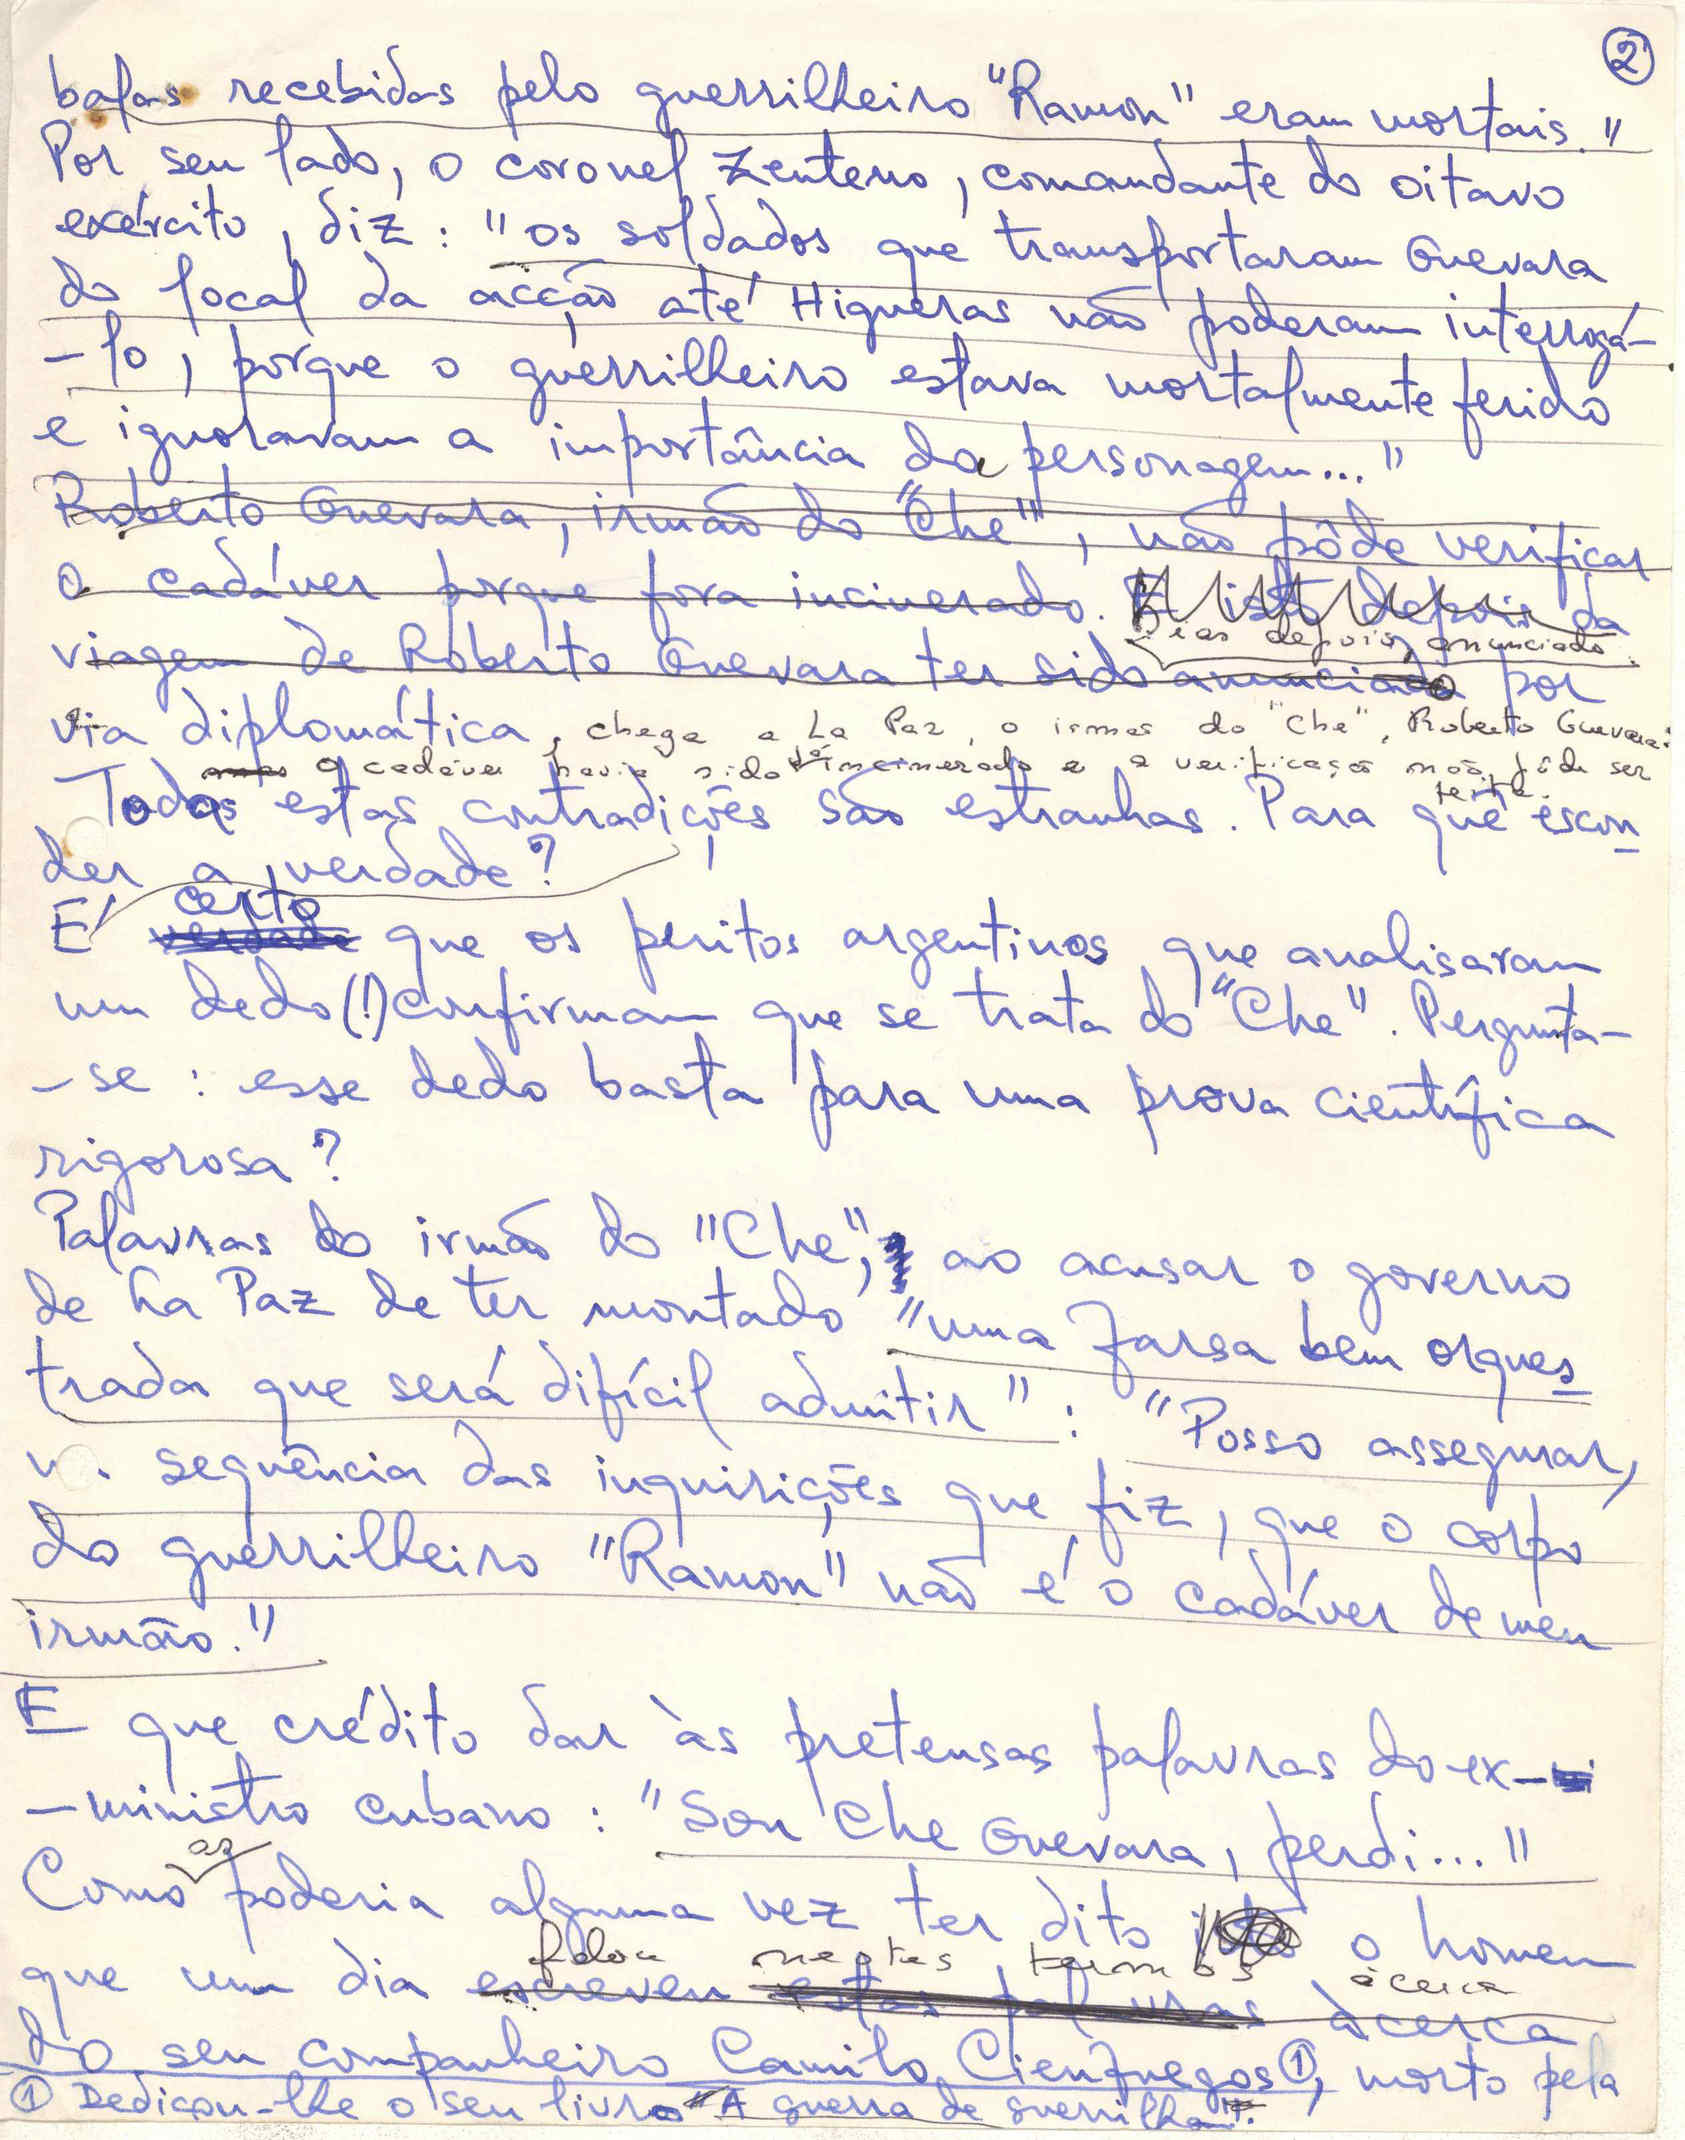 2
balas recebidas pelo guerrilheiro "Ramon" eram mortais."
Por seu lado, o coronel Zenteno, comandante do oitavo
exército, diz: "os soldados que transportaram Guevara
do local da acção até Higueras não poderam interrogá-
-lo, porque o guerrilheiro estava mortalmente ferido
e ignoravam a importância da personagem..."
Roberto Guevara, irmão do "Che", não pôde verificar
o cadáver porque fora incinerado. E isto depois da
Dias depois, anunciado
viagem de Roberto Guevara ter sido anunciada por
via diplomática, chega a La Paz, o irmão do "Che", Roberto Guevara:
o cadáver havia sido já incinerado e a verificação não pôde ser
feita.
Todas estas contradições são estranhas. Para quê escon
der a verdade?
certo
É verdade que os peritos argentinos que analisaram
um dedo (!) confirmam que se trata do "Che". Pergunta-
-se: esse dedo basta para uma prova científica
rigorosa?
Palavras do irmão do "Che", ao acusar o governo
de La Paz de ter montado "uma farsa bem orques
trada que será difícil admitir": "Posso assegurar,
na sequência das inquirições que fiz, que o corpo
do guerrilheiro "Ramon" não é o cadáver de meu
irmão."
E que crédito dar às pretensas palavras do ex-
-ministro cubano: "Sou Che Guevara, perdi..."
as
Como poderia alguma vez ter dito o homem
falou nestes termos àcerca
que um dia escreveu estas palavras àcerca
do seu companheiro Camilo Cienfuegos ①, morto pela
① Dedicou-lhe o seu livro "A guerra de guerrilha".